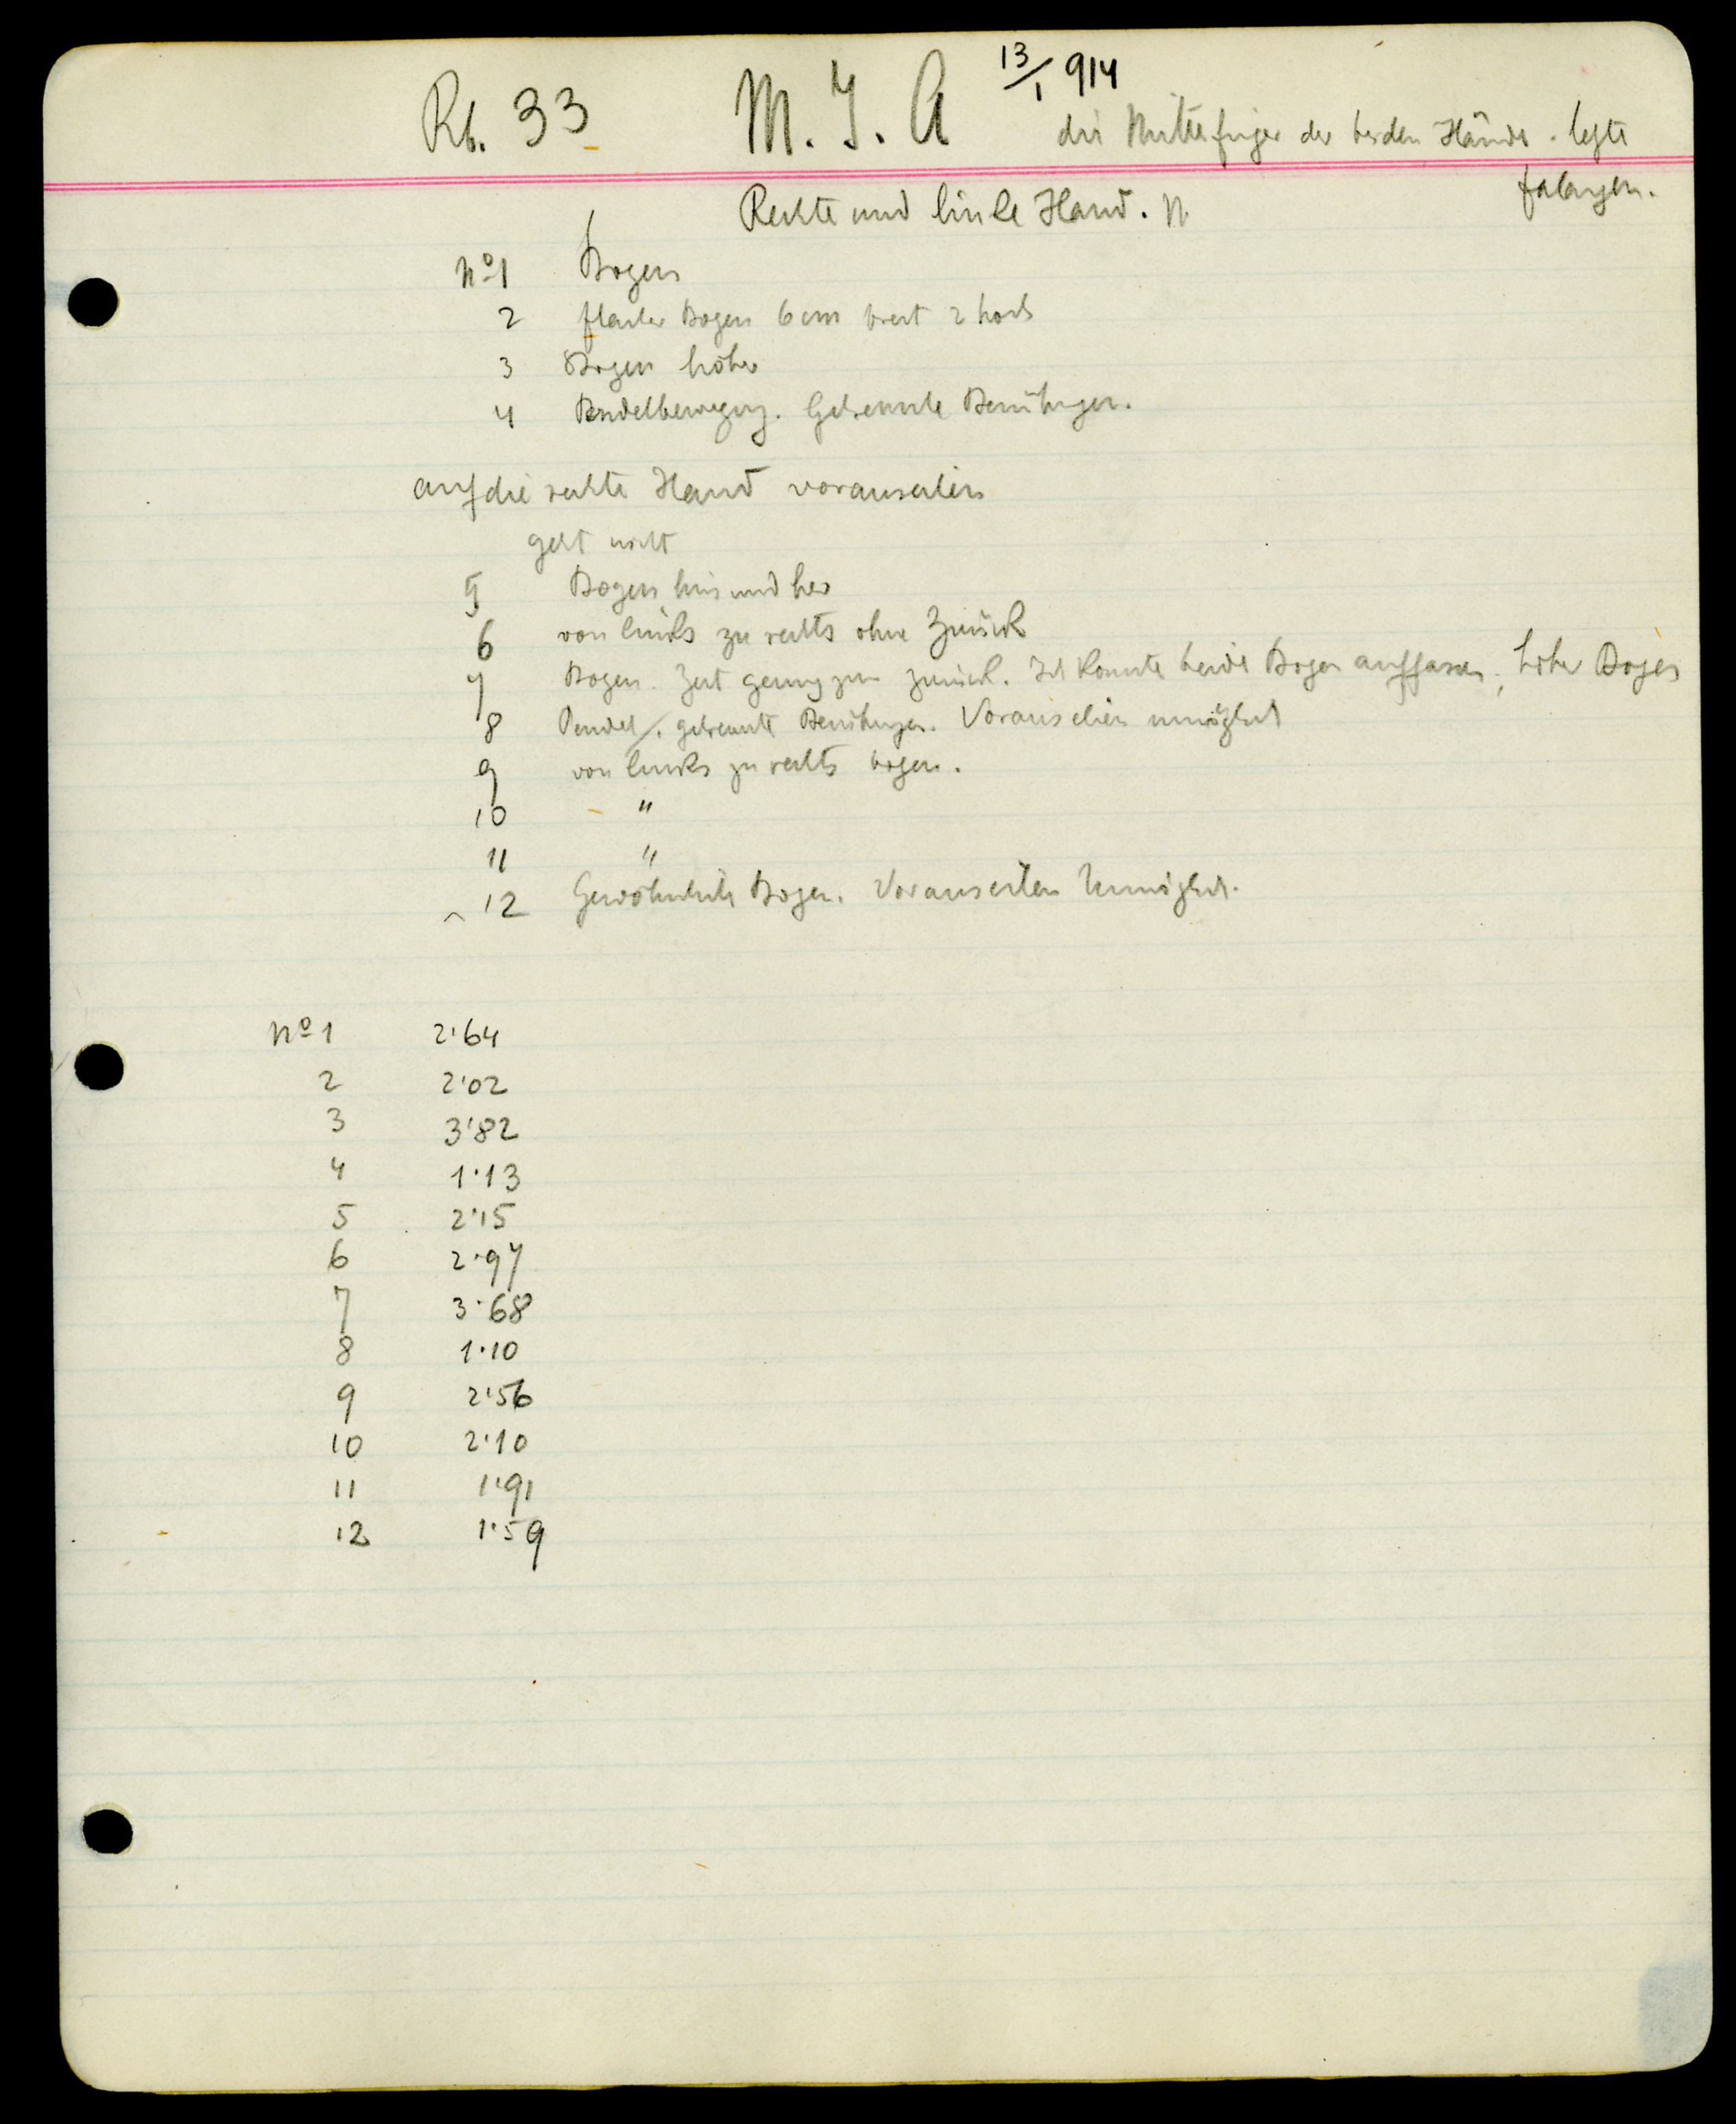 Rb. 33 M. I. A 13/1 914
die Mittelfinger der beiden Hände. letzte
falangen.
Rechte und linke Hand. N.
Nº1 Bogen
2 flacher Bogen 6 cm breit 2 hoch
3 Bogen höher
4 Pendelbewegung. Getrennte Berührungen.
auf die rechte Hand vorauseilen
geht nicht
5 Bogen hin und her
6 von links zu rechts ohne Zurück
7 Bogen. Zeit genug zum zurück. Ich konnte beide Bogen auffassen, hoher Bogen
8 Pendel, getrennte Berührungen. Vorauseilen unmöglich
9 von links zu rechts bogen.
10 "
11 "
12 Gewöhnliche Bogen. Vorauseilen Unmöglich.
Nº 1 2'64
2 2'02
3 3'82
4 1'13
5 2'15
6 2'97
7 3'68
8 1'10
9 2'56
10 2'10
11 1'91
12 1'59